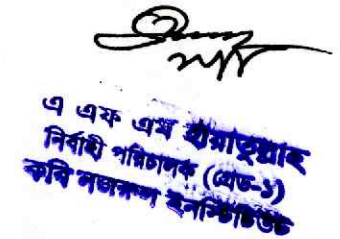 এ এফ এম হীরাতুল্লাহ
নির্বাহী পরিচালক (গ্রেড-১)
কবি নজরুল ইনস্টিটিউট